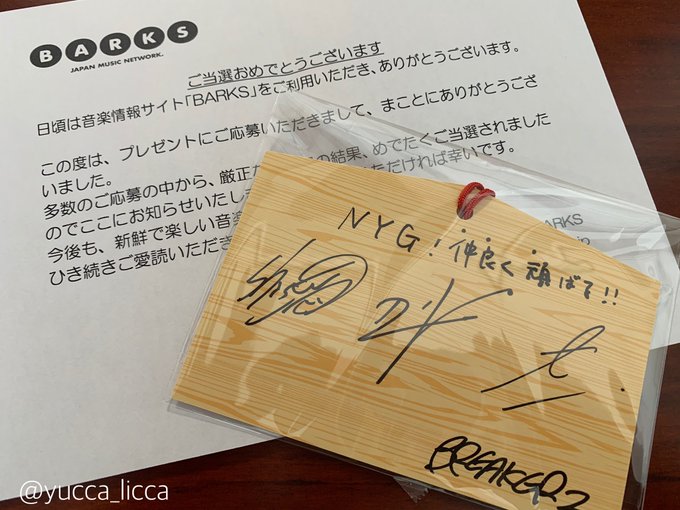 BARKS
JAPAN MUSIC NETWORK.
ご当選おめでとうございます
日頃は音楽情報サイト「BARKS」をご利用いただき、ありがとうございます。
この度は、プレゼントにご応募いただきまして、まことにありがとうござ
いました。
多数のご応募の中から、厳正な の結果、めでたくご当選されました
のでここにお知らせいたし ただければ幸いです。
今後も、新鮮で楽しい音楽 BARKS
ひき続きご愛読いただき jp
NYG!仲良く頑ばる!!
BREAKERZ
@yucca_licca